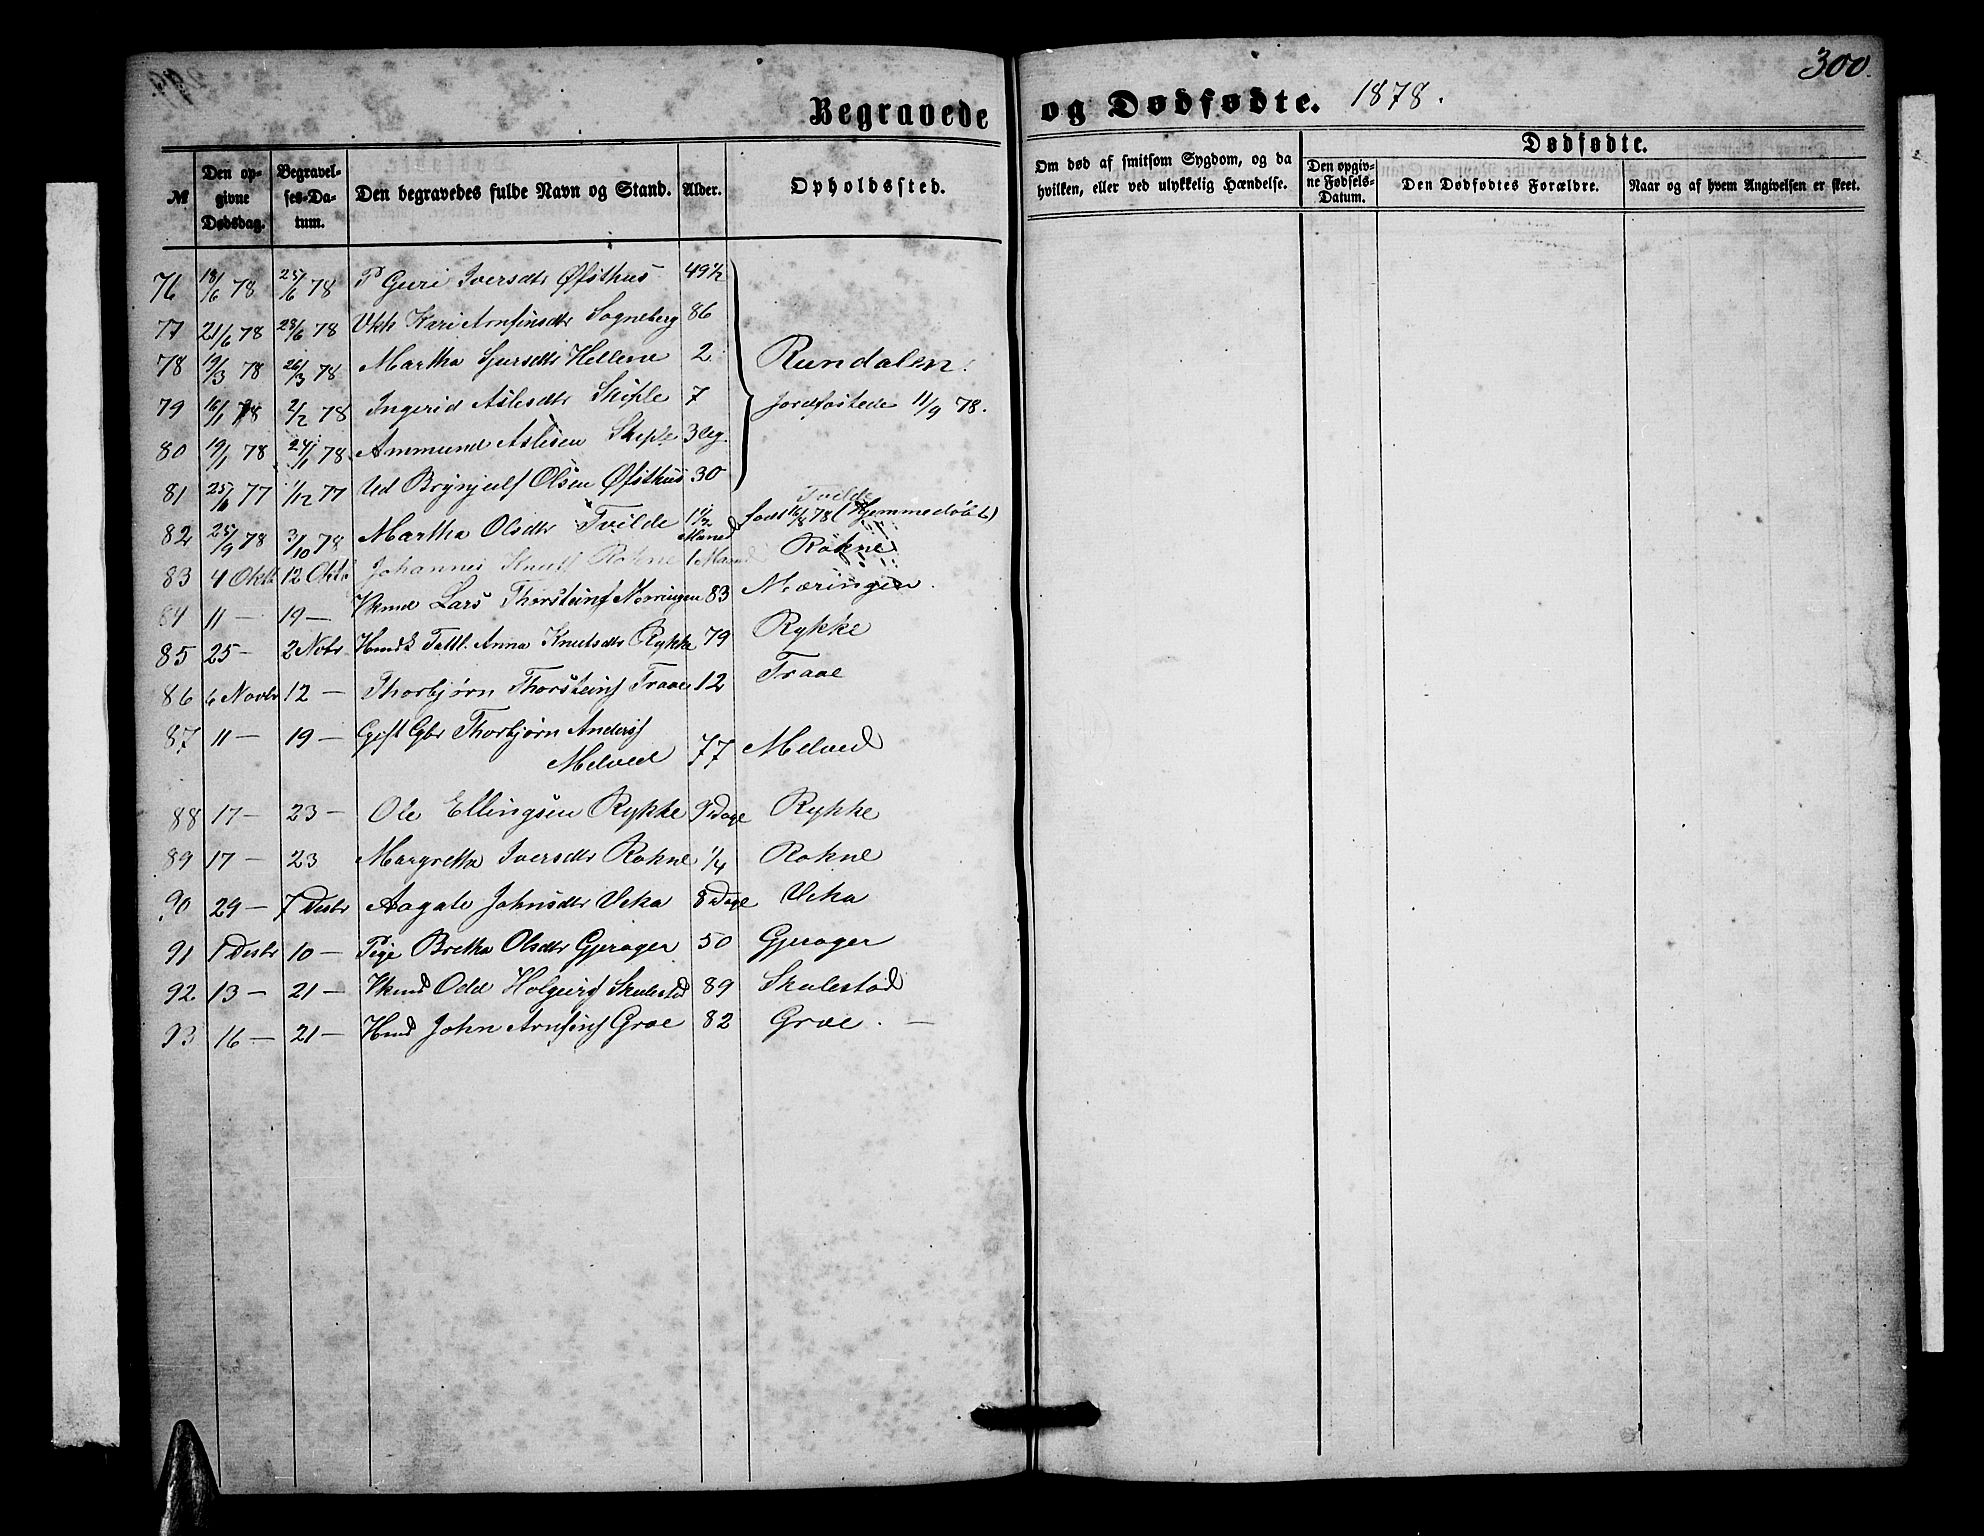 300.
Begravede og Dødfødte. 1878.
№
Den opgivne Dødsdag.
Begravelses-Datum.
Den begravedes fulde Navn og Stand.
Alder.
Opholdssted.
Om død af smitsom Sygdom, og da hvilken, eller ved ulykkelig Hændelse.
Dødfødte.
Den opgivne Fødsels-Datum.
Den Dødfødtes Forældre.
Naar og af hvem Angivelsen er skeet.
76 18/6 78 25/6 78 P Guri Iversdtr Øfsthus 49½
77 21/6 78 28/6 78 Kari Arnfinsdtr Sogneberg 86
78 19/3 78 26/3 78 Martha Sjursdtr Hellene 2 Rundalen.
79 16/1 78 2/2 78 Ingerid Aslesdtr Skiple 7 Jordfæstede 11/9 78.
80 19/1 78 24/1 78 Ammund Aslesen Skiple
81 25/ 77 1/12 77 Brynjulf Olsen Øfsthus 30
Tvilde
82 25/9 78 3/10 78 Martha Olsdtr Tvilde 1½ Maaned født 78 (Hjemmedøbt)
83 4 Oktb 12 Oktb Johannes Knuts Rokne 1 Maaned Rokne
84 11 — 19 — Lars Thorsteins Nærringen 83 Mæringen
85 25 — 2 Novbr Anna Knutsdtr Rykke 79 Rykke
86 6 Novbr 12 — Thorbjørn Thorsteins Traae 12 Traae
87 11 — 19 — Gift Gbr Thorbjørn Anders
Melved 77 Melved
88 17 — 23 — Ole Ellingsen Rykke Dage Rykke
89 17 — 23 Margretha Iversdtr Rokne ¼ Rokne
90 29 — 7 Desbr Aagate Johnsdtr Veka 8 Dage Veka
91 1 Desbr 10 — Pige Bretha Olsdtr Gjerager 50 Gjerager
92 13 — 21 — Odd Holgeirs Skulestad 89 Skulestad
93 16 — 21 — John Arnfins Groe 82 Groe. —